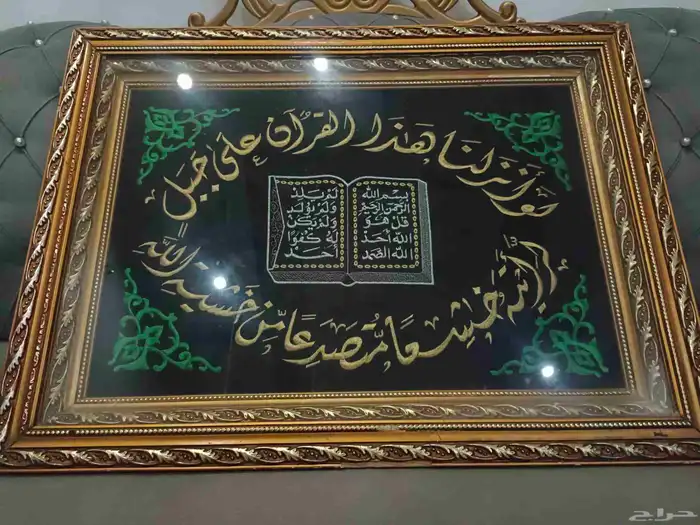 لو أنزلنا هذا القرآن على جبل
بسم الله
الرحمن الرحيم
قل هو
الله أحد
الله الصمد
لم يلد
ولم يولد
ولم يكن
له كفوا
أحد
لرأيته خشعا متصدعا من خشية الله
حراج